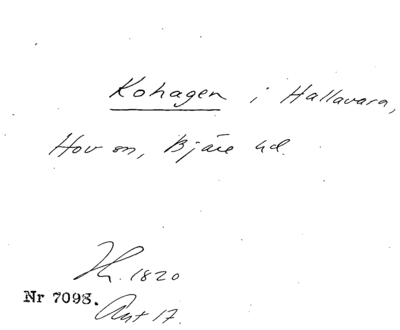 Kohagen i Hallavara,
Hov sn, Bjäre hd.
1820
Nr 7098.
Ant 17.